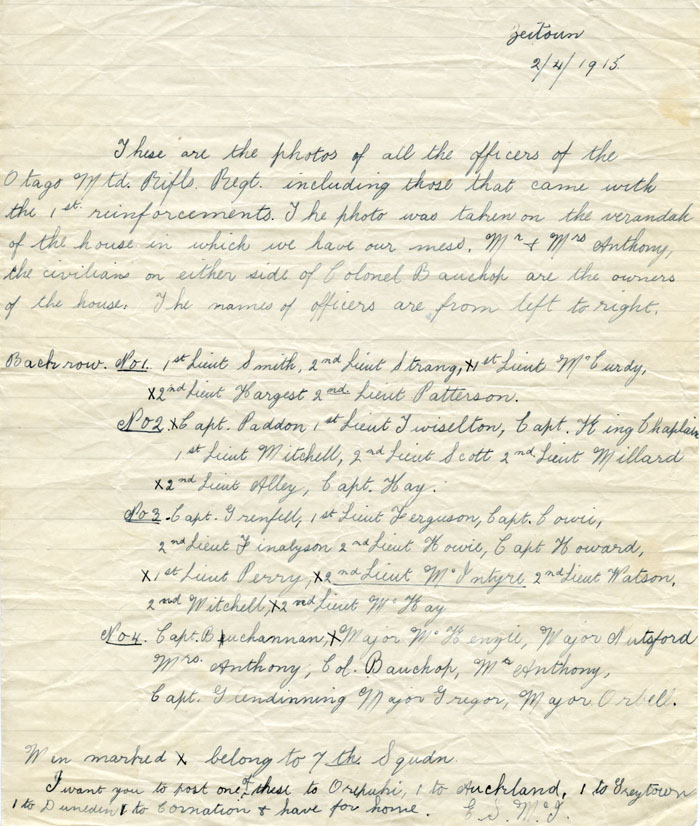 Zeitoun
2/4/1915
These are the photos of all the officers of the
Otago Mtd. Rifls. Regt. including those that came with
the 1st reinforcements. The photo was taken on the verandah
of the house in which we have our mess. Mr + Mrs Anthony,
the civilians on either side of Colonel Bauchop are the owners
of the house. The names of officers are from left to right.
Back row. No1. 1st Lieut Smith, 2nd Lieut Strang, x1st Lieut McCurdy,
x2nd Lieut Hargest 2nd Lieut Patterson.
No2. xCapt. Paddon 1st Lieut Twiselton, Capt. King Chaplain
1st Lieut Mitchell, 2nd Lieut Scott 2nd Lieut Millard
x2nd Lieut Alley, Capt. Hay.
No3. Capt. Grenfell, 1st Lieut Ferguson, Capt. Cowie,
2nd Lieut Finalyson 2nd Lieut Howie, Capt Howard,
x1st Lieut Perry, x2nd Lieut McIntyre 2nd Lieut Watson,
2nd Mitchell, x2nd Lieut McKay
No4. Capt. Bauchannan, x Major McKenzie, Major Nutsford
Mrs. Anthony, Col. Bauchop, Mr Anthony,
Capt. Glendinning Major Gregor, Major Orbell.
Men marked x belong to 7th. Squdn.
I want you to post one of these to Orepuki, 1 to Auckland, 1 to Greytown
1 to Dunedin 1 to Cornation & have for home. E. S. McI.